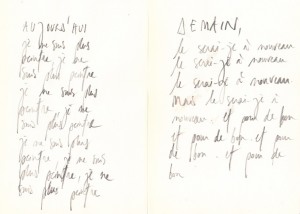 AUJOURD'HUI
je ne suis plus
peintre, je ne
suis plus peintre
je ne suis plus
peintre, je ne
suis plus peintre
je ne suis plus
peintre, je ne suis
plus peintre, je ne
suis plus peintre
DEMAIN,
le serai-je à nouveau
le serai-je à nouveau
le serai-je à nouveau
Mais le serai-je à
nouveau. et pour de bon
et pour de bon. et pour
de bon. et pour de
bon